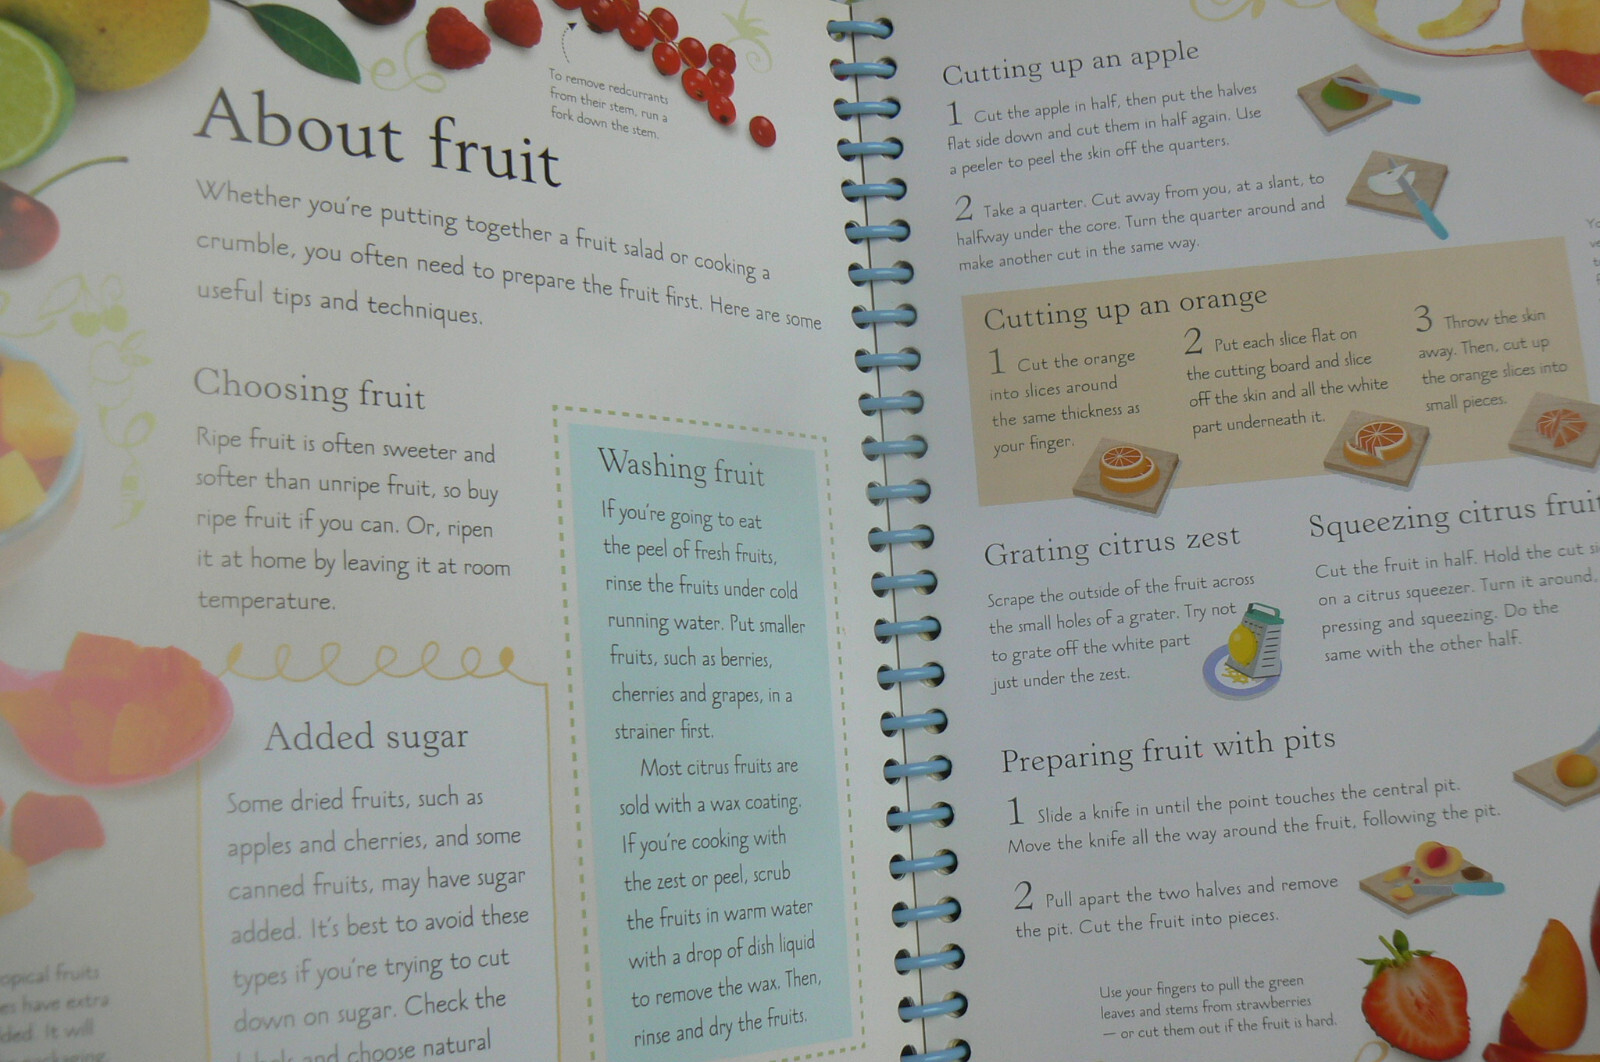 To remove redcurrants
from their stem, run a
fork down the stem.
About fruit
Whether you're putting together a fruit salad or cooking a
crumble, you often need to prepare the fruit first. Here are some
useful tips and techniques.
Choosing fruit
Ripe fruit is often sweeter and
softer than unripe fruit, so buy
ripe fruit if you can. Or, ripen
it at home by leaving it at room
temperature.
Added sugar
Some dried fruits, such as
apples and cherries, and some
canned fruits, may have sugar
added. It's best to avoid these
types if you're trying to cut
down on sugar. Check the
labels and choose natural
opical fruits
es have extra
ded. It will
Washing fruit
If you're going to eat
the peel of fresh fruits,
rinse the fruits under cold
running water. Put smaller
fruits, such as berries,
cherries and grapes, in a
strainer first.
Most citrus fruits are
sold with a wax coating.
If you're cooking with
the zest or peel, scrub
the fruits in warm water
with a drop of dish liquid
to remove the wax. Then,
rinse and dry the fruits.
Cutting up an apple
1 Cut the apple in half, then put the halves
flat side down and cut them in half again. Use
a peeler to peel the skin off the quarters.
2 Take a quarter. Cut away from you, at a slant, to
halfway under the core. Turn the quarter around and
make another cut in the same way.
Cutting up an orange
1 Cut the orange
into slices around
the same thickness as
your finger.
2 Put each slice flat on
the cutting board and slice
off the skin and all the white
part underneath it.
3 Throw the skin
away. Then, cut up
the orange slices into
small pieces.
Grating citrus zest
Scrape the outside of the fruit across
the small holes of a grater. Try not
to grate off the white part
just under the zest.
Squeezing citrus fruit
Cut the fruit in half. Hold the cut si
on a citrus squeezer. Turn it around,
pressing and squeezing. Do the
same with the other half.
Preparing fruit with pits
1 Slide a knife in until the point touches the central pit.
Move the knife all the way around the fruit, following the pit.
2 Pull apart the two halves and remove
the pit. Cut the fruit into pieces.
Use your fingers to pull the green
leaves and stems from strawberries
— or cut them out if the fruit is hard.